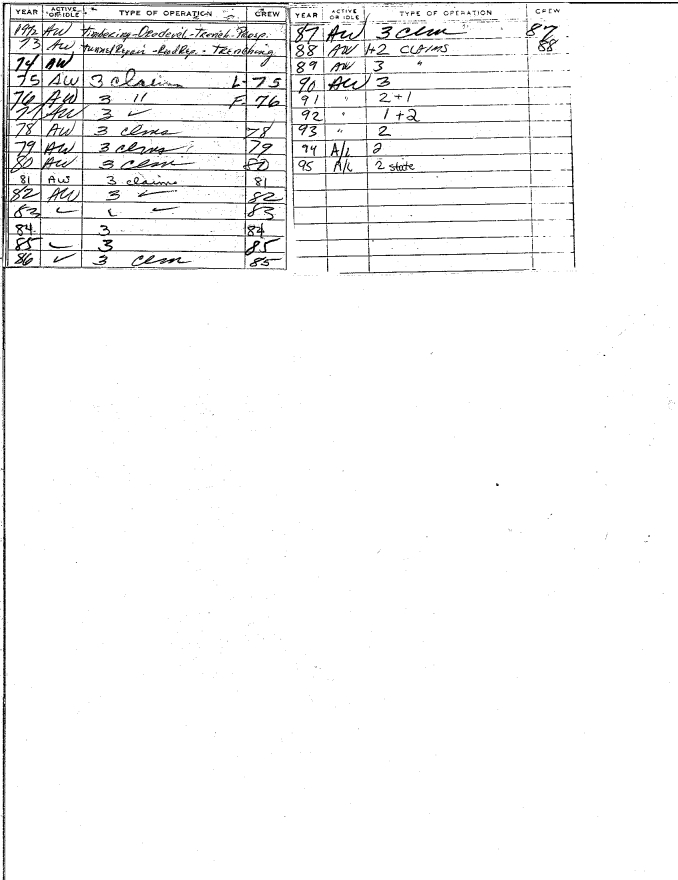 YEAR ACTIVE OR IDLE TYPE OF OPERATION CREW
1972 AW Timbering - - Trench -
73 AW Tunnel Repair - - Trenching
74 AW
75 AW 3 claims L-75
76 AW 3 " F 76
77 AW 3 ✓
78 AW 3 clms 78
79 AW 3 clms 79
80 AW 3 clm 80
81 AW 3 claims 81
82 AW 3 ✓ 82
83 ✓ ✓ ✓ 83
84 3 84
85 ✓ 3 85
86 ✓ 3 clm 85
YEAR ACTIVE OR IDLE TYPE OF OPERATION CREW
87 AW 3 clm 87
88 AW 1+2 CLAIMS 88
89 AW 3 "
90 AW 3
91 " 2+1
92 " 1+2
93 " 2
94 A/L 2
95 A/L 2 state